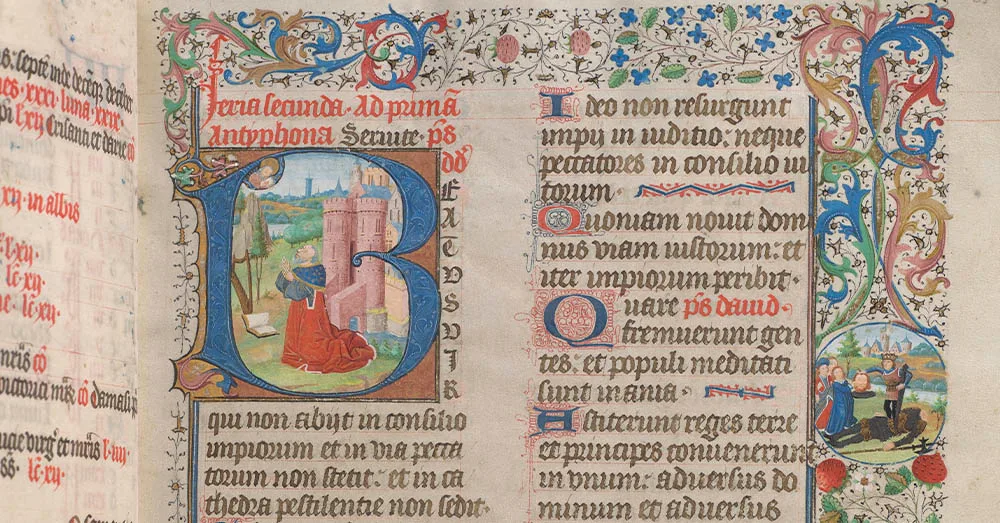 es xxxi luna xxix
l xij Crisanti et darie cō
xij in albis
l xij
lc xij
lc xij
mr̄is cō
cō Damasi
uirḡ et mr̄is l iij
lc xij
Feria secunda · Ad primā
Antyphona Seruite · p̄s
dd̄
BEATVS VIR
qui non abijt in consilio
impiorum et in via pecca
torum non stetit : et in ca
thedra pestilentie non sedit ·
Ideo non resurgunt
impij in iuditio : neque
peccatores in consilio iu
storum ·
Quoniam nouit domi
nus viam iustorum : et
iter impiorum peribit ·
Quare p̄s dauid ·
fremuerunt gen
tes : et populi meditati
sunt inania ·
Astiterunt reges terre
et principes conuenerunt
in vnum : aduersus do
minum et aduersus